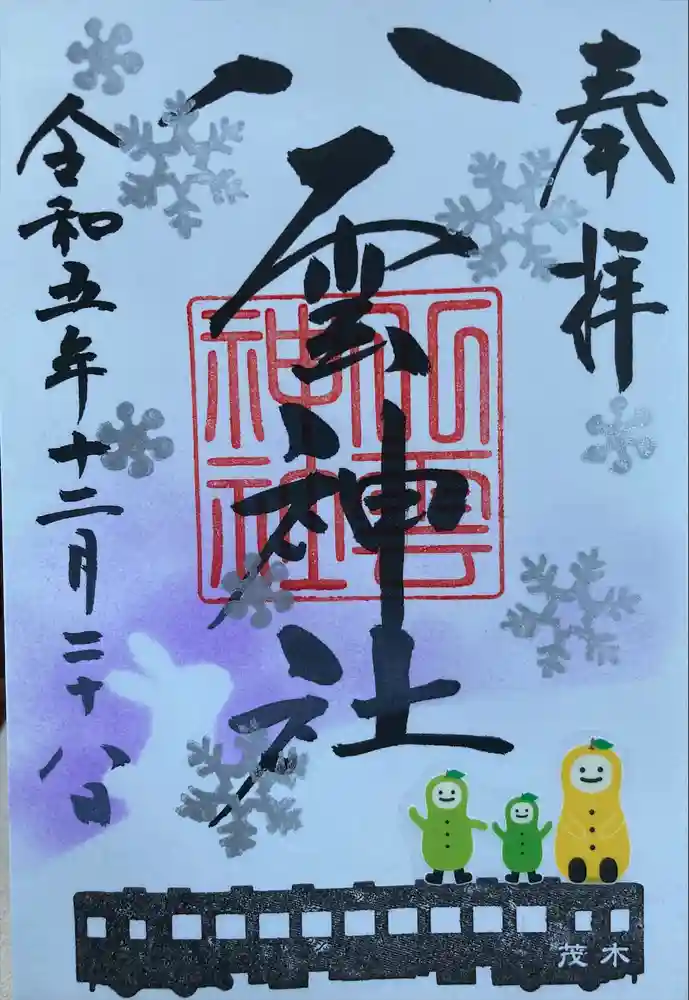 奉拝
八雲神社
八雲神社
令和五年十二月二十八日
茂木